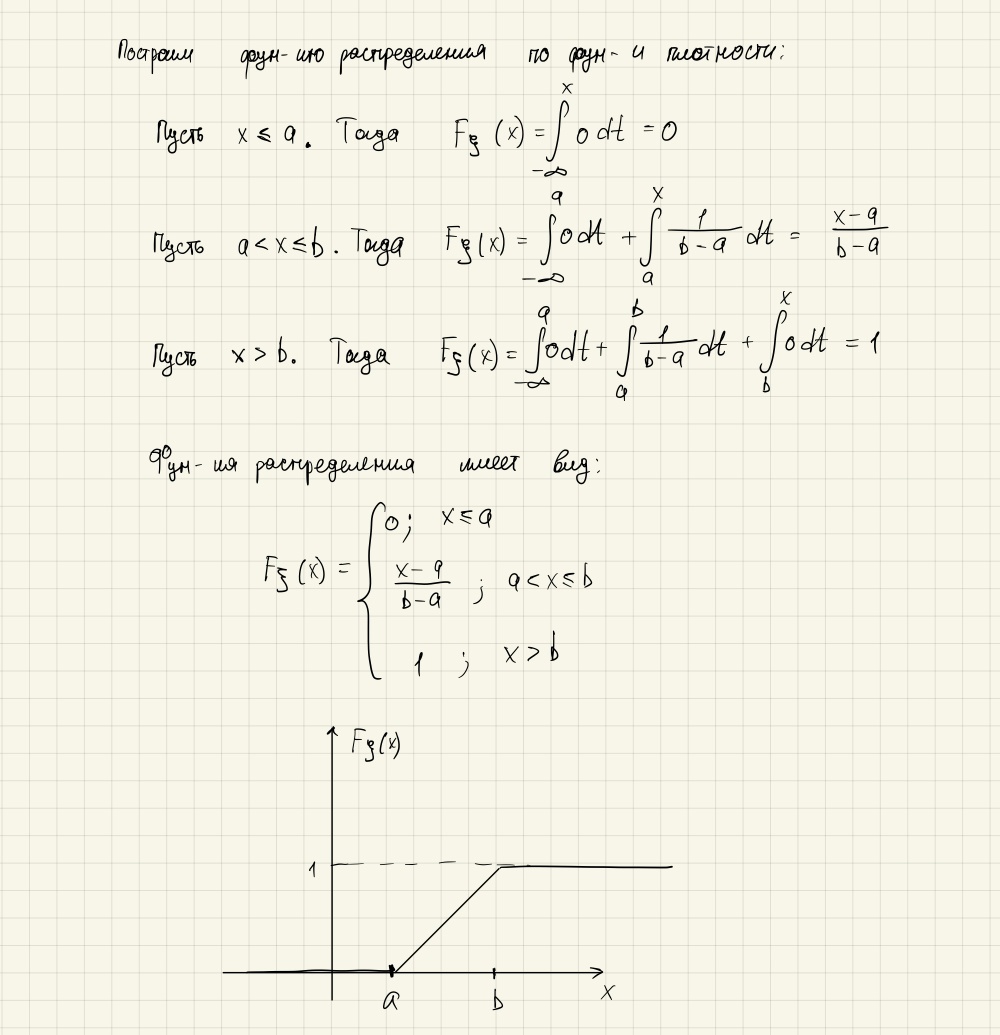 Построим фун-ию распределения по фун-и плотности:
Пусть x ≤ a. Тогда F_ξ (x) = ∫_{-∞}^{x} 0 dt = 0
Пусть a < x ≤ b. Тогда F_ξ(x) = ∫_{-∞}^{a} 0 dt + ∫_{a}^{x} 1/(b-a) dt = (x-a)/(b-a)
Пусть x > b. Тогда F_ξ(x) = ∫_{-∞}^{a} 0 dt + ∫_{a}^{b} 1/(b-a) dt + ∫_{b}^{x} 0 dt = 1
Фун-ия распределения имеет вид:
F_ξ(x) = {
0; x ≤ a
(x-a)/(b-a) ; a < x ≤ b
1 ; x > b
F_ξ(x)
1
a b x